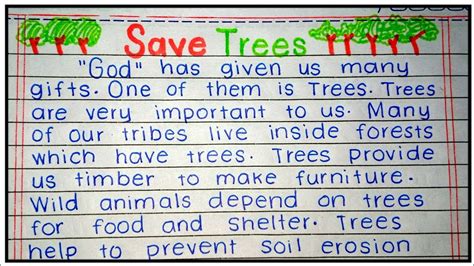 Save Trees
"God" has given us many
gifts. One of them is Trees. Trees
are very important to us. Many
of our tribes live inside forests
which have trees. Trees provide
us timber to make furniture.
Wild animals depend on trees
for food and shelter. Trees
help to prevent soil erosion